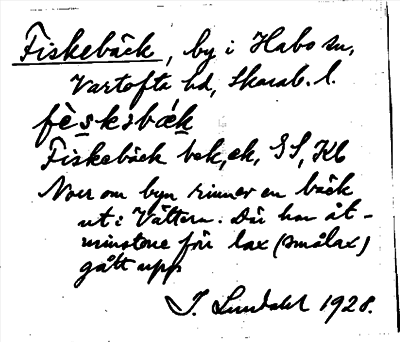 Fiskebäck, by i Habo sn,
Vartofta hd, Skarab. l.
fèskəbæk
Fiskebäck bek, ek, GS, Kb
Norr om byn rinner en bäck
ut i Vättern. Där har åt-
minstone förr lax (smålax)
gått upp
I. Lundahl 1928.